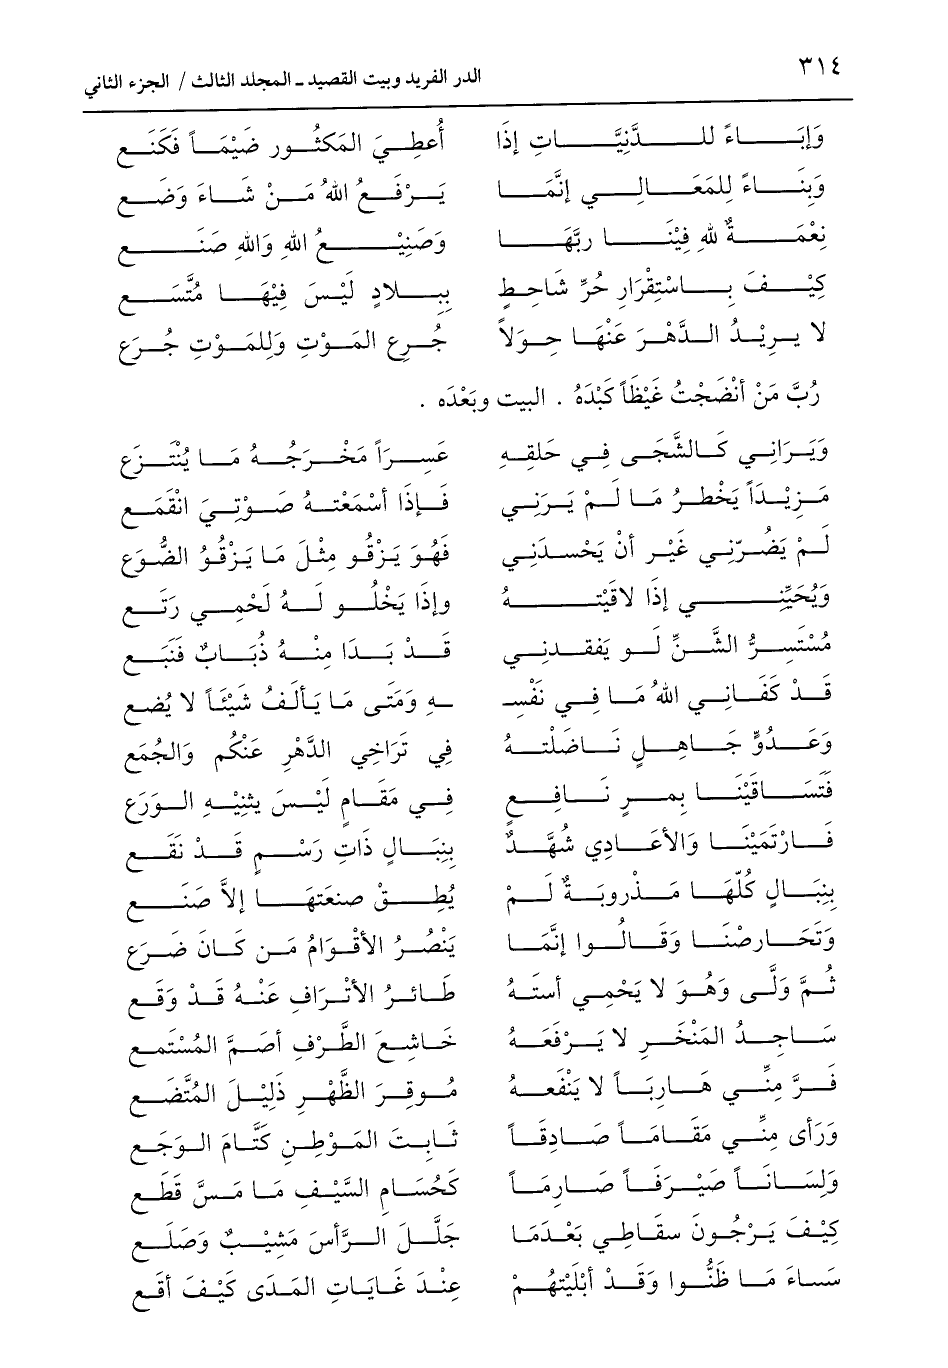 ٣١٤
الدر الفريد وبيت القصيد ـ المجلد الثالث / الجزء الثاني
وَإِبَاءً لِلدَّنِيَّاتِ إِذَا أُعطِيَ المَكثُور ضَيْمَاً فَكَنَع
وَبنَاءً لِلمَعَالِي إِنَّمَا يَرْفَعُ اللهُ مَنْ شَاءَ وَضَع
نِعْمَةٌ للهِ فِيْنَا ربَّهَا وَصَنِيْعُ اللهِ وَالله صَنَع
كَيْفَ بِاسْتِقْرَارِ حُرٍّ شَاحِطٍ بِبِلادٍ لَيْسَ فِيْهَا مُتَّسَع
لا يرِيْدُ الدَّهْرَ عَنْهَا حِوَلاً جُرعِ المَوْتِ وَلِلمَوْتِ جُرَع
رُبَّ مَنْ أَنْضَجْتُ غَيْظَاً كَبْدَهُ . البيت وبَعْدَه .
وَيَرَانِي كَالشَّجَى فِي حَلقِهِ عَسِرَاً مَخْرَجُهُ مَا يُنْتَزَع
مزيْدَاً يَخْطرُ مَا لَمْ يَرَنِي فَإِذَا أَسْمَعْتهُ صَوْتِيَ انْقَمَع
لَمْ يَضُرّنِي غَيْر أَنْ يَحْسدنِي فَهُوَ يَزْقُو مِثْلَ مَا يَزْقُوُ الضُّوَع
وَيُحَيِّنِي إِذَا لاقَيْتهُ وإِذَا يَخْلُو لَهُ لَحْمِي رَتَع
مُسْتسِرُّ الشَّنِّ لَو يَفقدنِي قَدْ بَدَا مِنْهُ ذُبَابٌ فَنَبَع
قَدْ كَفَانِي اللهُ مَا فِي نَفْسـ ـهِ وَمَتَى مَا يَأْلَفُ شَيْئَاً لا يُضِع
وَعَدُوٍّ جَاهِلٍ نَاضَلْتهُ فِي تَرَاخِي الدَّهْرِ عَنْكُم وَالجُمَع
فَتَسَاقَيْنَا بِمرٍ نَاقِعٍ فِي مَقَامٍ لَيْسَ يثْنِيْهِ الوَرَع
فَارْتَمَيْنَا وَالأَعَادِي شُهَّدٌ بِنِبَالٍ ذَاتِ رَسْمٍ قَدْ نَقَع
بِنِبَالٍ كُلّهَا مَذْرُوبَةٌ لَمْ يُطِقْ صنعَتهَا إِلاَّ صَنَع
وَتَحَارضنَا وَقَالُوا إِنَّمَا يَنْصُرُ الأَقْوَامُ مَن كَانَ ضَرَع
ثُمَّ وَلَّى وَهُوَ لا يَحْمِي أستهُ طَائرُ الأَتْرَافِ عَنْهُ قَدْ وَقَع
سَاجِدُ المَنْخرِ لا يَرْفَعهُ خَاشِعَ الطَّرْفِ أَصَمَّ المُسْتمِع
فَرَّ مِنِّي هَارِبَاً لا يَنْفعهُ مُوقِرَ الظَّهْرِ ذَلِيْلَ المُتَّضَع
وَرَأى مِنِّي مَقَامَاً صَادِقَاً ثَابِتَ المَوْطِنِ كَتَّامَ الوَجَع
وَلِسَانَاً صَيْرَفَاً صَارِمَاً كَحُسَامِ السَّيْفِ مَا مَسَّ قطَع
كَيْفَ يَرْجُونَ سقَاطِي بَعْدَمَا جَلَّلَ الرَّأسَ مَشِيْبٌ وَصَلَع
سَاءَ مَا ظَنُّوا وَقَدْ أَبْلَيْتهُمْ عِنْدَ غَايَاتِ المَدَى كَيْفَ أَقَع